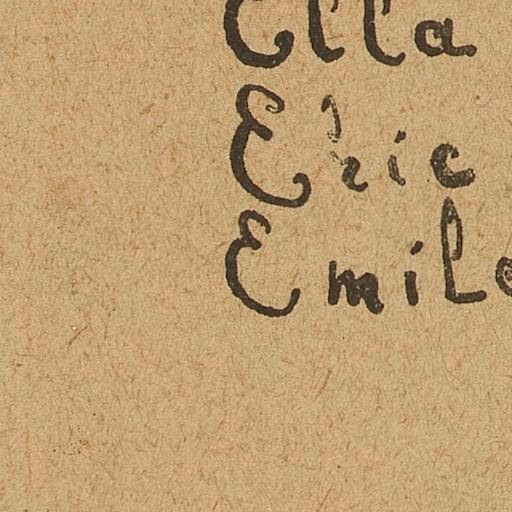 Ella
Eric
Emile